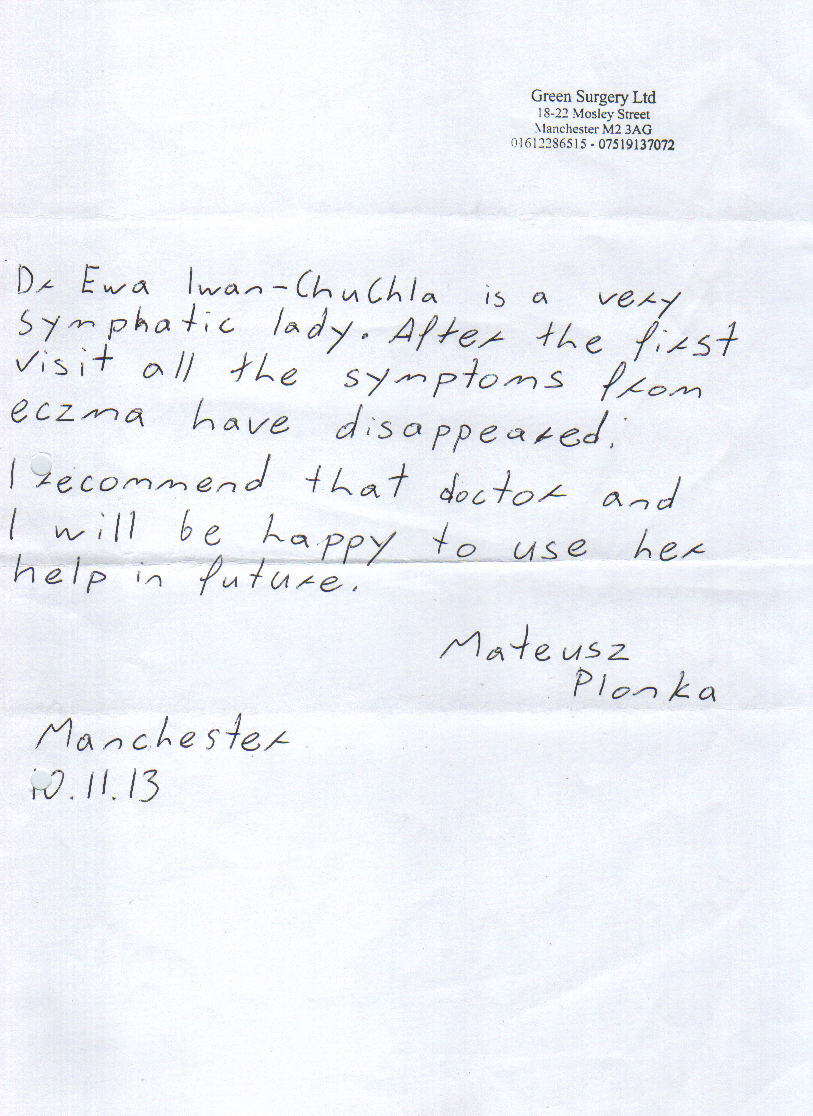 Green Surgery Ltd
18-22 Mosley Street
Manchester M2 3AG
01612286515 - 07519137072
Dr Ewa Iwan-Chuchla is a very
symphatic lady. After the first
visit all the symptoms from
eczma have disappeared.
I recommend that doctor and
I will be happy to use her
help in future.
Mateusz
Plonka
Manchester
10.11.13